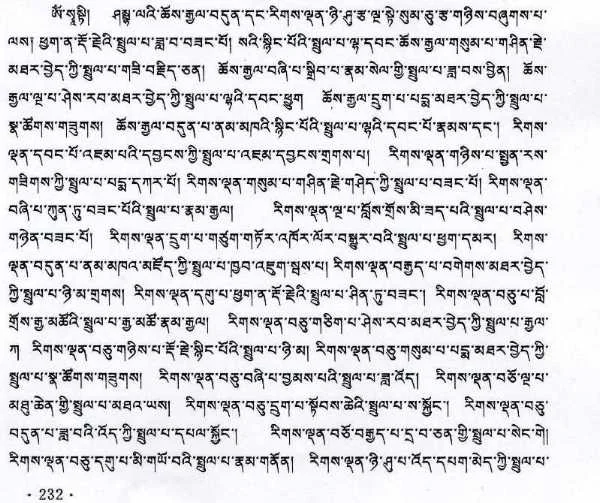 ༀ་སྭསྟི། ཤམྦྷ་ལའི་ཆོས་རྒྱལ་བདུན་དང་རིགས་ལྡན་ཉི་ཤུ་རྩ་ལྔ་སྟེ་སུམ་ཅུ་རྩ་གཉིས་བཞུགས་པ་
ལས། ཕྱག་ན་རྡོ་རྗེའི་སྤྲུལ་པ་ཟླ་བ་བཟང་པོ། སའི་སྙིང་པོའི་སྤྲུལ་པ་ལྷ་དབང་ཆོས་རྒྱལ་གསུམ་པ་གཤིན་རྗེ་
མཐར་བྱེད་ཀྱི་སྤྲུལ་པ་གཟི་བརྗིད་ཅན། ཆོས་རྒྱལ་བཞི་པ་སྒྲིབ་པ་རྣམ་སེལ་གྱི་སྤྲུལ་པ་ཟླ་བས་བྱིན། ཆོས་
རྒྱལ་ལྔ་པ་ཤེས་རབ་མཐར་བྱེད་ཀྱི་སྤྲུལ་པ་ལྷའི་དབང་ཕྱུག ཆོས་རྒྱལ་དྲུག་པ་པདྨ་མཐར་བྱེད་ཀྱི་སྤྲུལ་པ་
སྣ་ཚོགས་གཟུགས། ཆོས་རྒྱལ་བདུན་པ་ནམ་མཁའི་སྙིང་པོའི་སྤྲུལ་པ་ལྷའི་དབང་པོ་རྣམས་དང་། རིགས་
ལྡན་དང་པོ་འཇམ་པའི་དབྱངས་ཀྱི་སྤྲུལ་པ་འཇམ་དབྱངས་གྲགས་པ། རིགས་ལྡན་གཉིས་པ་སྤྱན་རས་
གཟིགས་ཀྱི་སྤྲུལ་པ་པདྨ་དཀར་པོ། རིགས་ལྡན་གསུམ་པ་གཤིན་རྗེ་གཤེད་ཀྱི་སྤྲུལ་པ་བཟང་པོ། རིགས་ལྡན་
བཞི་པ་ཀུན་ཏུ་བཟང་པོའི་སྤྲུལ་པ་རྣམ་རྒྱལ། རིགས་ལྡན་ལྔ་པ་བློས་གྲོས་མི་ཟད་པའི་སྤྲུལ་པ་བཤེས་
གཉེན་བཟང་པོ། རིགས་ལྡན་དྲུག་པ་གཙུག་གཏོར་འཁོར་ལོར་བསྒྱུར་བའི་སྤྲུལ་པ་ཕྱག་དམར། རིགས་
ལྡན་བདུན་པ་ནམ་མཁའ་མཛོད་ཀྱི་སྤྲུལ་པ་ཁྱབ་འཇུག་སྦས་པ། རིགས་ལྡན་བརྒྱད་པ་བགེགས་མཐར་བྱེད་
ཀྱི་སྤྲུལ་པ་ཉི་མ་གྲགས། རིགས་ལྡན་དགུ་པ་ཕྱག་ན་རྡོ་རྗེའི་སྤྲུལ་པ་ཤིན་ཏུ་བཟང་། རིགས་ལྡན་བཅུ་པ་བློ་
གྲོས་རྒྱ་མཚོའི་སྤྲུལ་པ་རྒྱ་མཚོ་རྣམ་རྒྱལ། རིགས་ལྡན་བཅུ་གཅིག་པ་ཤེས་རབ་མཐར་བྱེད་ཀྱི་སྤྲུལ་པ་རྒྱལ་
ཀ། རིགས་ལྡན་བཅུ་གཉིས་པ་རྡོ་རྗེ་སྙིང་པོའི་སྤྲུལ་པ་ཉི་མ། རིགས་ལྡན་བཅུ་གསུམ་པ་པདྨ་མཐར་བྱེད་ཀྱི་
སྤྲུལ་པ་སྣ་ཚོགས་གཟུགས། རིགས་ལྡན་བཅུ་བཞི་པ་བྱམས་པའི་སྤྲུལ་པ་ཟླ་འོད། རིགས་ལྡན་བཅོ་ལྔ་པ་
མཐུ་ཆེན་གྱི་སྤྲུལ་པ་མཐའ་ཡས། རིགས་ལྡན་བཅུ་དྲུག་པ་སྟོབས་ཆེའི་སྤྲུལ་པ་ས་སྐྱོང་། རིགས་ལྡན་བཅུ་
བདུན་པ་ཟླ་བའི་འོད་ཀྱི་སྤྲུལ་པ་དཔལ་སྐྱོང་། རིགས་ལྡན་བཅོ་བརྒྱད་པ་དྲ་བ་ཅན་གྱི་སྤྲུལ་པ་སེང་གེ།
རིགས་ལྡན་བཅུ་དགུ་པ་མི་གཡོ་བའི་སྤྲུལ་པ་རྣམ་གནོན། རིགས་ལྡན་ཉི་ཤུ་པ་འོད་དཔག་མེད་ཀྱི་སྤྲུལ་པ་
· 232 ·